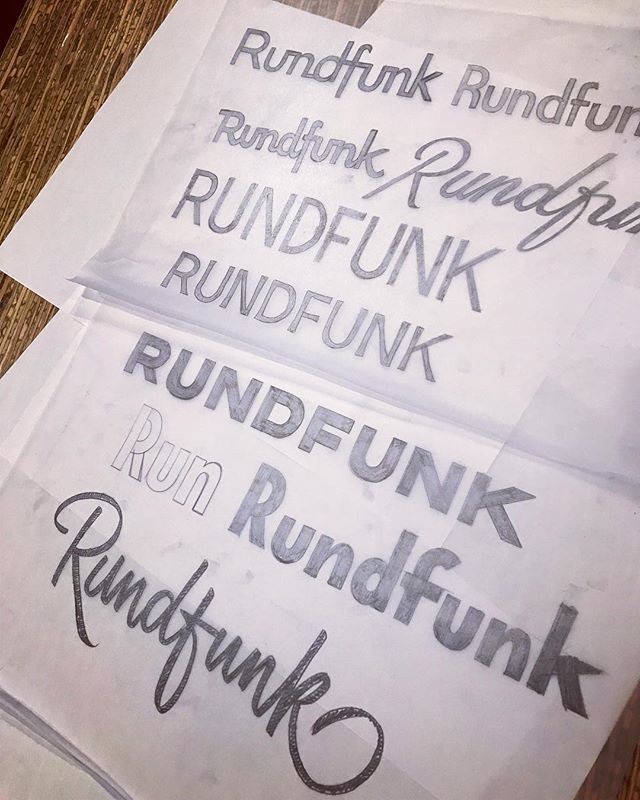 Rundfunk Rundfun
Rundfunk Rundfun
RUNDFUNK
RUNDFUNK
RUNDFUNK
Run Rundfunk
Rundfunk